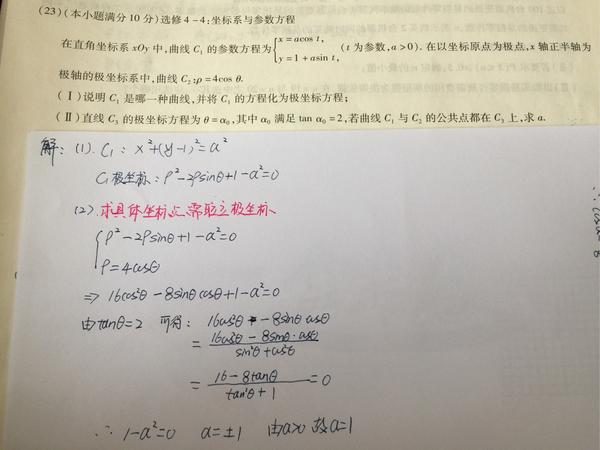 (23)(本小题满分10分)选修4-4:坐标系与参数方程
在直角坐标系xOy中,曲线C₁的参数方程为{x=acos t, y=1+asin t, (t为参数,a>0).在以坐标原点为极点,x轴正半轴为
极轴的极坐标系中,曲线C₂:ρ=4cos θ.
(Ⅰ)说明C₁是哪一种曲线,并将C₁的方程化为极坐标方程;
(Ⅱ)直线C₃的极坐标方程为θ=α₀,其中α₀满足tan α₀=2,若曲线C₁与C₂的公共点都在C₃上,求a.
解:(1).C₁: x²+(y-1)²=a²
C₁极坐标:ρ²-2ρsinθ+1-a²=0
(2).求具体坐标点需联立极坐标
{ρ²-2ρsinθ+1-a²=0
ρ=4cosθ
⇒ 16cos²θ-8sinθcosθ+1-a²=0
由tanθ=2 可得: 16cos²θ-8sinθcosθ
= (16cos²θ-8sinθ·cosθ)/(sin²θ+cos²θ)
= (16-8tanθ)/(tan²θ+1) =0
∴ 1-a²=0 a=±1 由a>0 故a=1